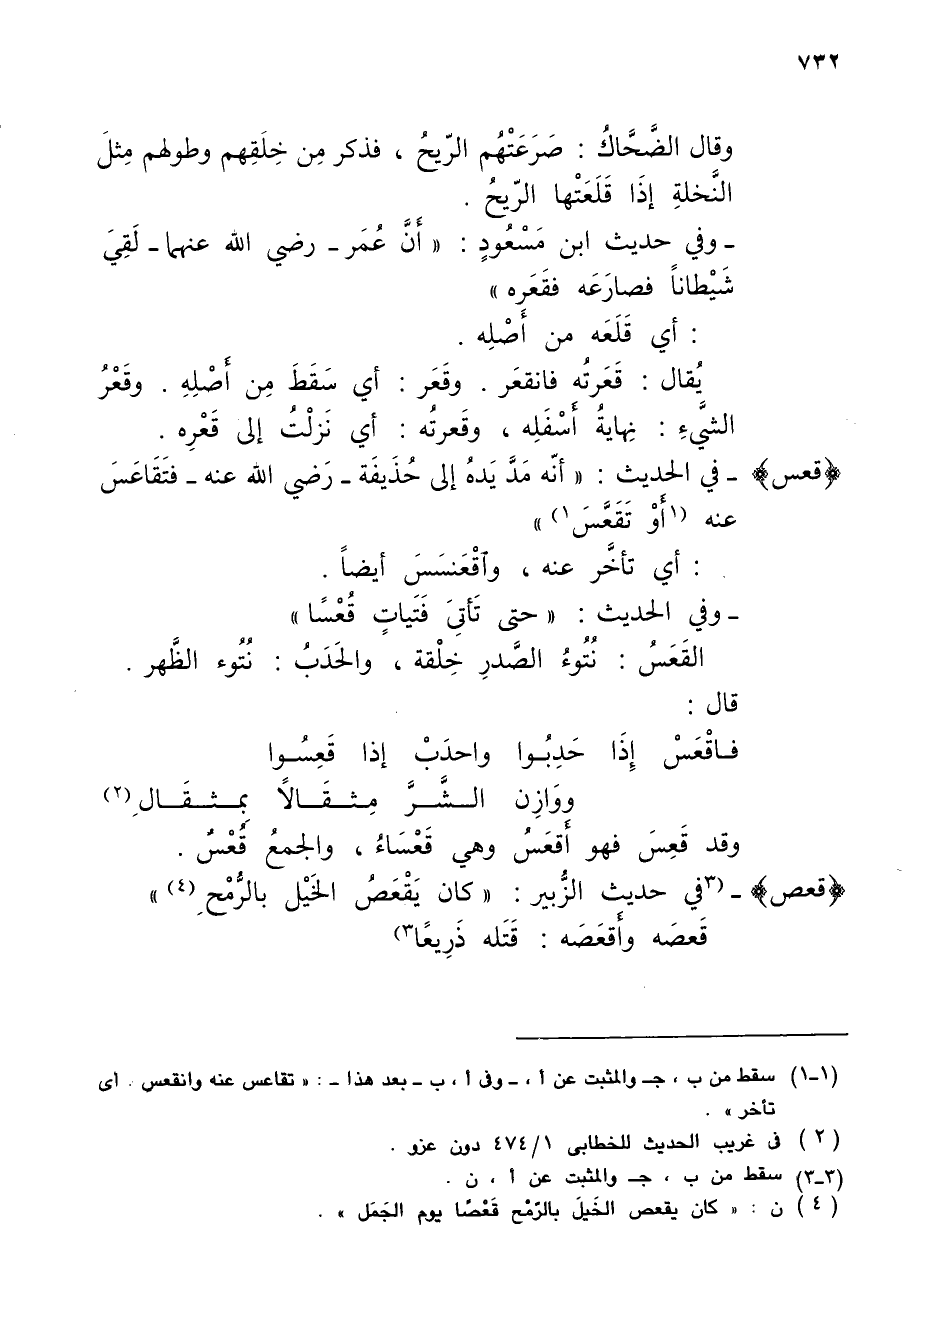 ٧٣٢
وقال الضَّحَّاكُ : صَرَعَتْهُم الرّيحُ ، فذكر مِن خِلَقِهم وطولهم مِثلَ
النَّخلةِ إذَا قَلَعَتْها الرّيحُ .
ـ وفي حديث ابن مَسْعُودٍ : « أَنَّ عُمَر ـ رضي الله عنهما ـ لَقِيَ
شَيْطاناً فصارَعَه فقَعَره »
: أي قَلَعَه من أَصْلِه .
يُقال : قَعَرتُه فانقعَر . وقَعَر : أي سَقَطَ مِن أَصْلِهِ . وقَعْرُ
الشيَّءِ : نِهايةُ أَسْفَلِه ، وقَعرتُه : أي نَزلْتُ إلى قَعْرِه .
﴿قعس﴾ ـ في الحديث : « أنّه مَدَّ يَدهُ إلى حُذَيفَة ـ رَضي الله عنه ـ فتَقَاعَسَ
عنه (١أَوْ تَقَعَّسَ١) »
: أي تأخَّر عنه ، وٱقْعَنسَسَ أيضاً .
ـ وفي الحديث : « حتى تَأتىَ فَتَياتٍ قُعْسًا »
القَعَسُ : نُتُوءُ الصَّدرِ خِلْقة ، والحَدَبُ : نُتُوء الظَّهر .
قال :
فـاقْعَسْ إِذَا حَدِبُـوا واحدَبْ إذا قَعِسُـوا
ووَازِن الـشَّــرَّ مِـثـقَــالاً بِمـثـقَـال(٢)
وقد قَعِسَ فهو أَقعَسُ وهي قَعْسَاءُ ، والجمعُ قُعْسٌ .
﴿قعص﴾ ـ (٣في حديث الزُّبير : « كان يَقْعَصُ الخَيْل بالرُّمْحِ (٤) »
قَعصَه وأَقعَصَه : قَتَله ذَرِيعًا٣)
(١ـ١) سقط من ب ، جـ والمثبت عن أ ، ـ وفى أ ، ب ـ بعد هذا ـ : « تقاعس عنه وانقعس . أى
تأخر » .
( ٢ ) فى غريب الحديث للخطابى ٤٧٤/١ دون عزو .
(٣ـ٣) سقط من ب ، جـ والمثبت عن أ ، ن .
( ٤ ) ن : « كان يقعص الخَيلَ بالرّمْح قَعْصًا يوم الجَمَل » .